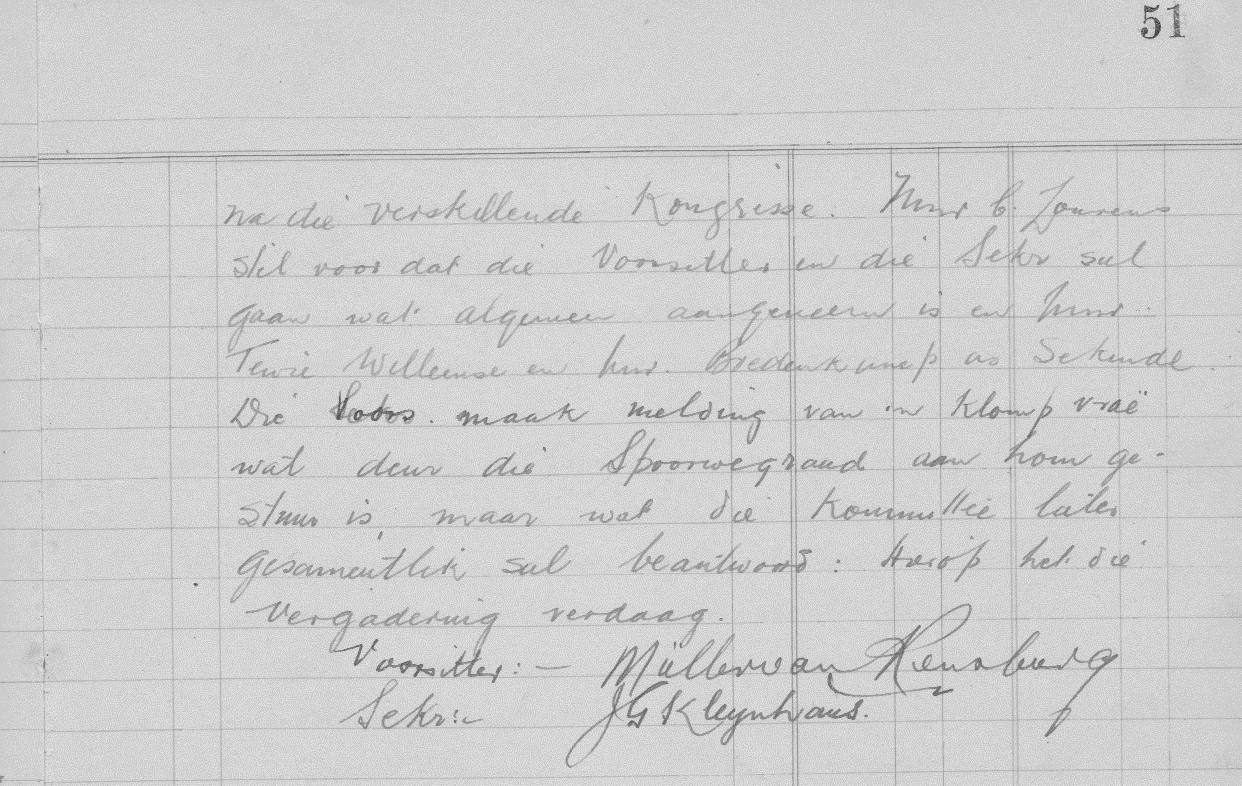 51
na die verskillende Kongresse. Mnr C. Lourens
stel voor dat die Voorsitter en die Sekr sal
gaan wat algemeen aangeneem is en Mnr.
Tewie Willemse en Mnr. Bredenkamp as Sekunde.
Die Voors. maak melding van 'n klomp vraë
wat deur die Spoorwegraad aan hom ge-
stuur is, maar wat die Kommittie later
gesamentlik sal beantwoord: Hierop het die
Vergadering verdaag.
Voorsitter: — Müller van Rensburg
Sekr:— JG Kleynhans.